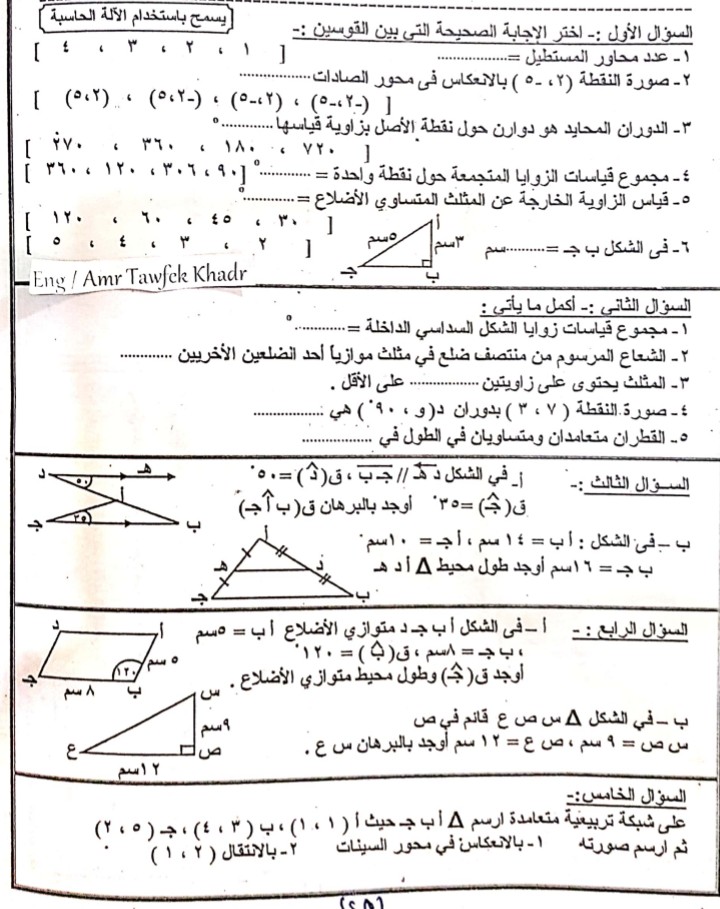 يسمح باستخدام الآلة الحاسبة
السؤال الأول :- اختر الإجابة الصحيحة التى بين القوسين :-
١- عدد محاور المستطيل =.................. [ ١ ، ٢ ، ٣ ، ٤ ]
٢- صورة النقطة (٢، -٥) بالانعكاس فى محور الصادات ..................
[ (-٢،-٥) ، (٢،-٥) ، (-٥،٢) ، (٥،٢) ]
٣- الدوران المحايد هو دوارن حول نقطة الأصل بزاوية قياسها............°
[ ٧٢٠ ، ١٨٠ ، ٣٦٠ ، ٢٧٠ ]
٤- مجموع قياسات الزوايا المتجمعة حول نقطة واحدة = ............° [ ٩٠ ، ٣٠٦ ، ١٢٠ ، ٣٦٠ ]
٥- قياس الزاوية الخارجة عن المثلث المتساوي الأضلاع =............°
[ ٣٠ ، ٤٥ ، ٦٠ ، ١٢٠ ]
٦- فى الشكل ب جـ =..........سم [ ٢ ، ٣ ، ٤ ، ٥ ]
أ
٥سم
٣سم
جـ
ب
Eng / Amr Tawfek Khadr
السؤال الثانى :- أكمل ما يأتى :
١- مجموع قياسات زوايا الشكل السداسي الداخلة =............°
٢- الشعاع المرسوم من منتصف ضلع في مثلث موازياً أحد الضلعين الأخريين ............
٣- المثلث يحتوى على زاويتين ................ على الأقل .
٤- صورة النقطة ( ٧ ، ٣ ) بدوران د(و ، ٩٠°) هي :................
٥- القطران متعامدان ومتساويان في الطول في ................
السؤال الثالث :- أ- في الشكل د هـ // جـ ب ، ق(د) = ٥٠°
ق(جـ) = ٣٥° أوجد بالبرهان ق(ب أ جـ)
د
هـ
٥٠
أ
٣٥
جـ
ب
ب – فى الشكل : أ ب = ١٤ سم ، أ جـ = ١٠ سم
ب جـ = ١٦سم أوجد طول محيط Δ أ د هـ
أ
هـ
د
جـ
ب
السؤال الرابع :- أ – فى الشكل أ ب جـ د متوازي الأضلاع أ ب = ٥سم
، ب جـ = ٨سم ، ق(ب) = ١٢٠°
أوجد ق(جـ) وطول محيط متوازي الأضلاع .
د
أ
٥ سم
١٢٠
جـ
٨ سم
ب
ب – في الشكل Δ س ص ع قائم في ص
س ص = ٩ سم ، ص ع = ١٢ سم أوجد بالبرهان س ع .
س
٩سم
ع
ص
١٢سم
السؤال الخامس:-
على شبكة تربيعية متعامدة ارسم Δ أ ب جـ حيث أ ( ١ ، ١ ) ، ب ( ٣ ، ٤ ) ، جـ ( ٥ ، ٢ )
ثم ارسم صورته ١- بالانعكاس في محور السينات ٢- بالانتقال ( ٢ ، ١ )